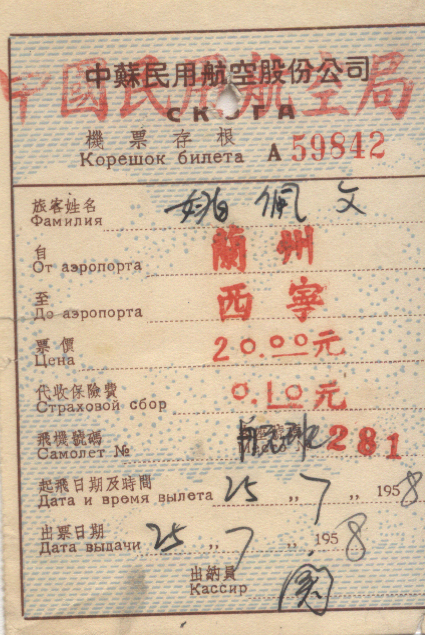 中蘇民用航空股份公司
中國民用航空局
СКОГА
機票存根
Корешок билета А 59842
旅客姓名 姚佩文
Фамилия
自 蘭州
От аэропорта
至 西寧
До аэропорта
票價 20.00元
Цена
代收保險費 0.10元
Страховой сбор
飛機號碼 281
Самолет №
起飛日期及時間
Дата и время вылета 25 „ 7 „ 1958
出票日期
Дата выдачи 25 „ 7 „ 1958
出納員
Кассир